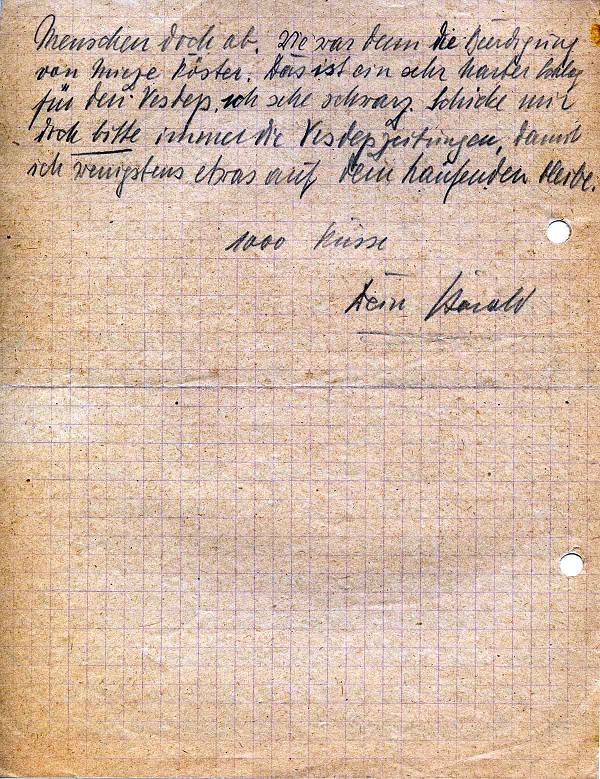 Menschen doch ab. Wie war denn die Beerdigung
von Mieze Köster. Das ist ein sehr harter Schlag
für den Vesdep, ich sehe schwarz. Schicke mir
doch bitte immer die Vesdepzeitungen, damit
ich wenigstens etwas auf dem Laufenden bleibe.
1000 Küsse
Dein Harald